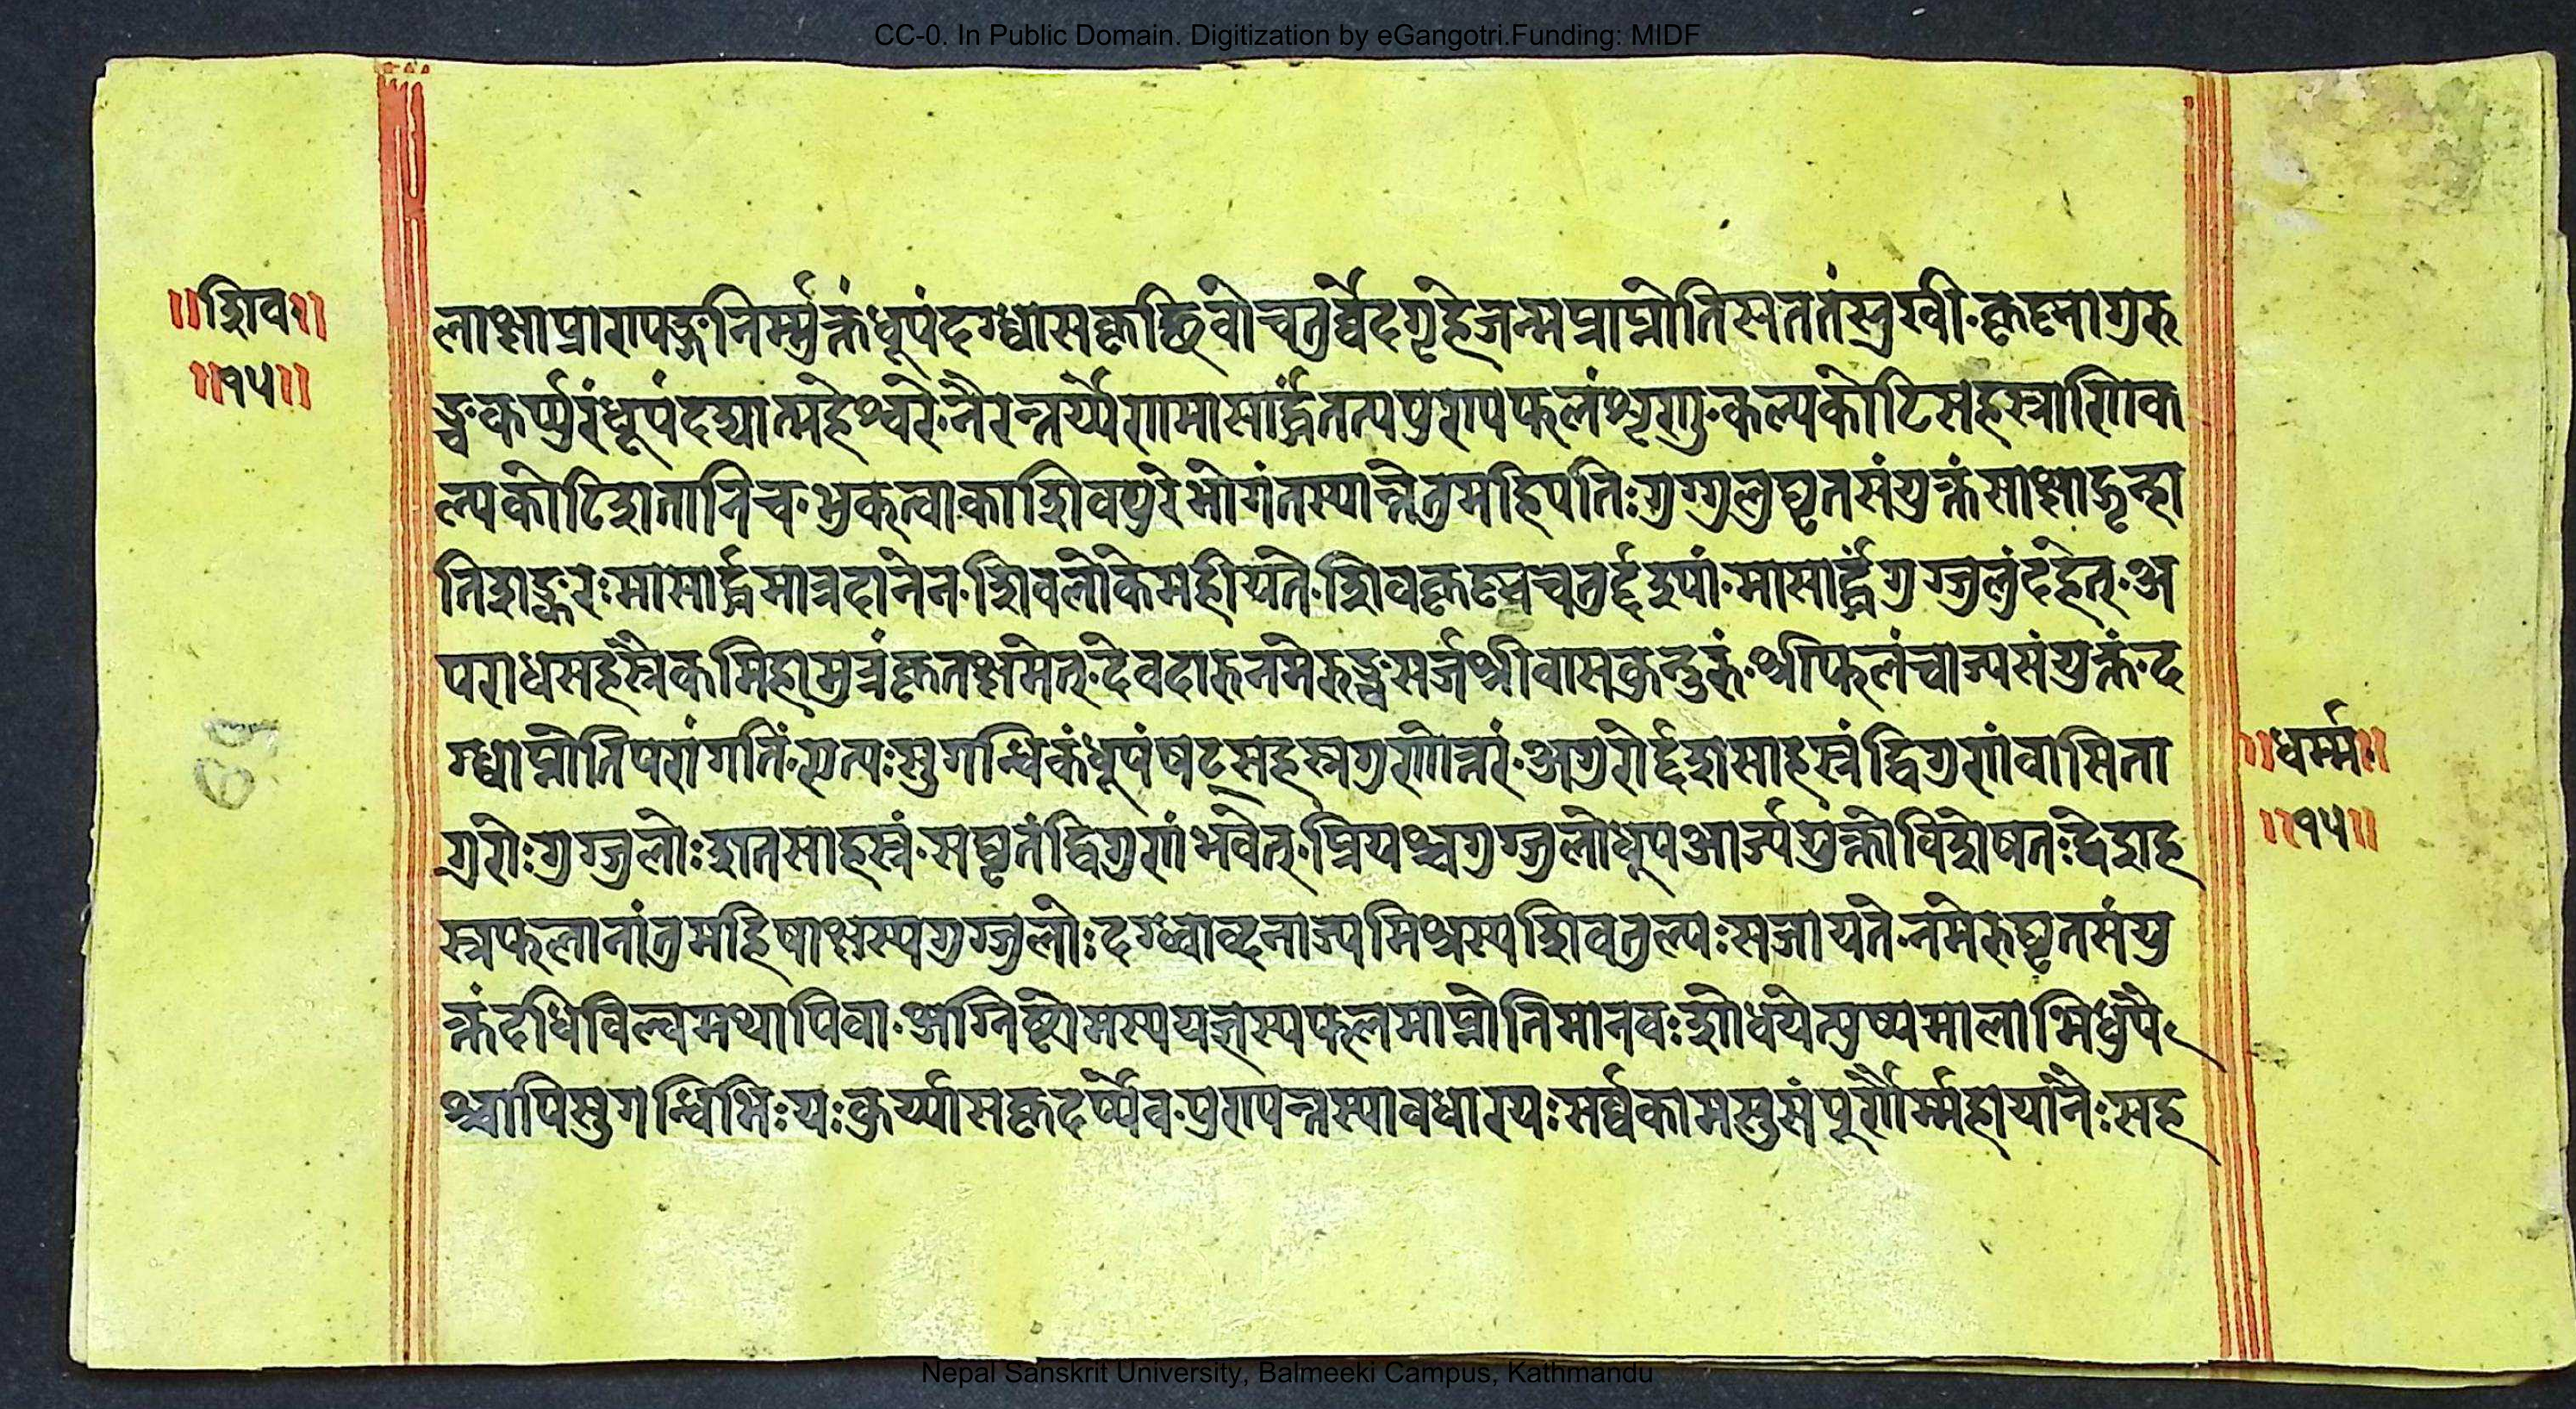 CC-0. In Public Domain. Digitization by eGangotri.Funding: MIDF
॥शिव॥
॥१५॥
लाक्षाप्राणपङ्गनिर्म्मुक्तंधूपंदग्ध्वासकृच्छिवो॰चतुर्व्वेदगृहेजन्मप्राप्नोतिसततंसुखी॰कृष्णागुरु
ञ्चकर्प्पुरंधूपंदद्यात्महेश्वरे॰नैरन्तर्य्येणमासार्द्धंतत्यपुण्यफलंशृणु॰कल्पकोटिसहस्राणिक
ल्पकोटिशतानिच॰भुक्त्वाकाशिवपुरेभोगंतस्यान्तेतुमहिपतिःगुग्गुलुघृतसंयुक्तंसाक्षाद्गृह्ना
तिशङ्करःमासार्द्धमात्रदानेन॰शिवलोकेमहीयते॰शिवकृष्णचतुर्द्दश्यां॰मासार्द्धंगुग्गुलुंदहेत्॰अ
पराधसहस्रैकमिहामुत्रंकृतक्षमेत्॰देवदारुनमेरुञ्चसर्जश्रीवासकुन्दुरुं॰श्रीफलंचाज्यसंयुक्तं॰द
ग्ध्वाप्नोतिपरांगतिं॰एत्यःसुगन्धिकंधूपंषट्सहस्रगुणोत्तरं॰अगुरोर्द्दशसाहस्रंद्विगुणंवासिता
गुरोःगुग्गुलोःशतसाहस्रं॰सघृतंद्विगुणंभवेत्॰प्रियश्चगुग्गुलोधूपआर्ज्ययुक्तोविशेषतःद्वेशह
स्रफलानांतुमहिषाक्षस्यगुग्गुलोःदग्ध्वाव्दनाज्यमिश्रस्यशिवतुल्यःसजायते॰नमेरुघृतसंयु
क्तंदधिविल्वमथापिवा॰अग्निष्टोमस्ययज्ञस्यफलमाप्नोतिमानवःशोधयेत्पुष्पमालाभिर्धुपै
श्चापिसुगन्धिभिःयःकुर्य्यासकृदर्प्येव॰पुण्यन्तस्यावधारयःसर्व्वकामसुसंपूर्णैर्म्महायानैःसह
॥धर्म्म॰॥
॥१५॥
Nepal Sanskrit University, Balmeeki Campus, Kathmandu